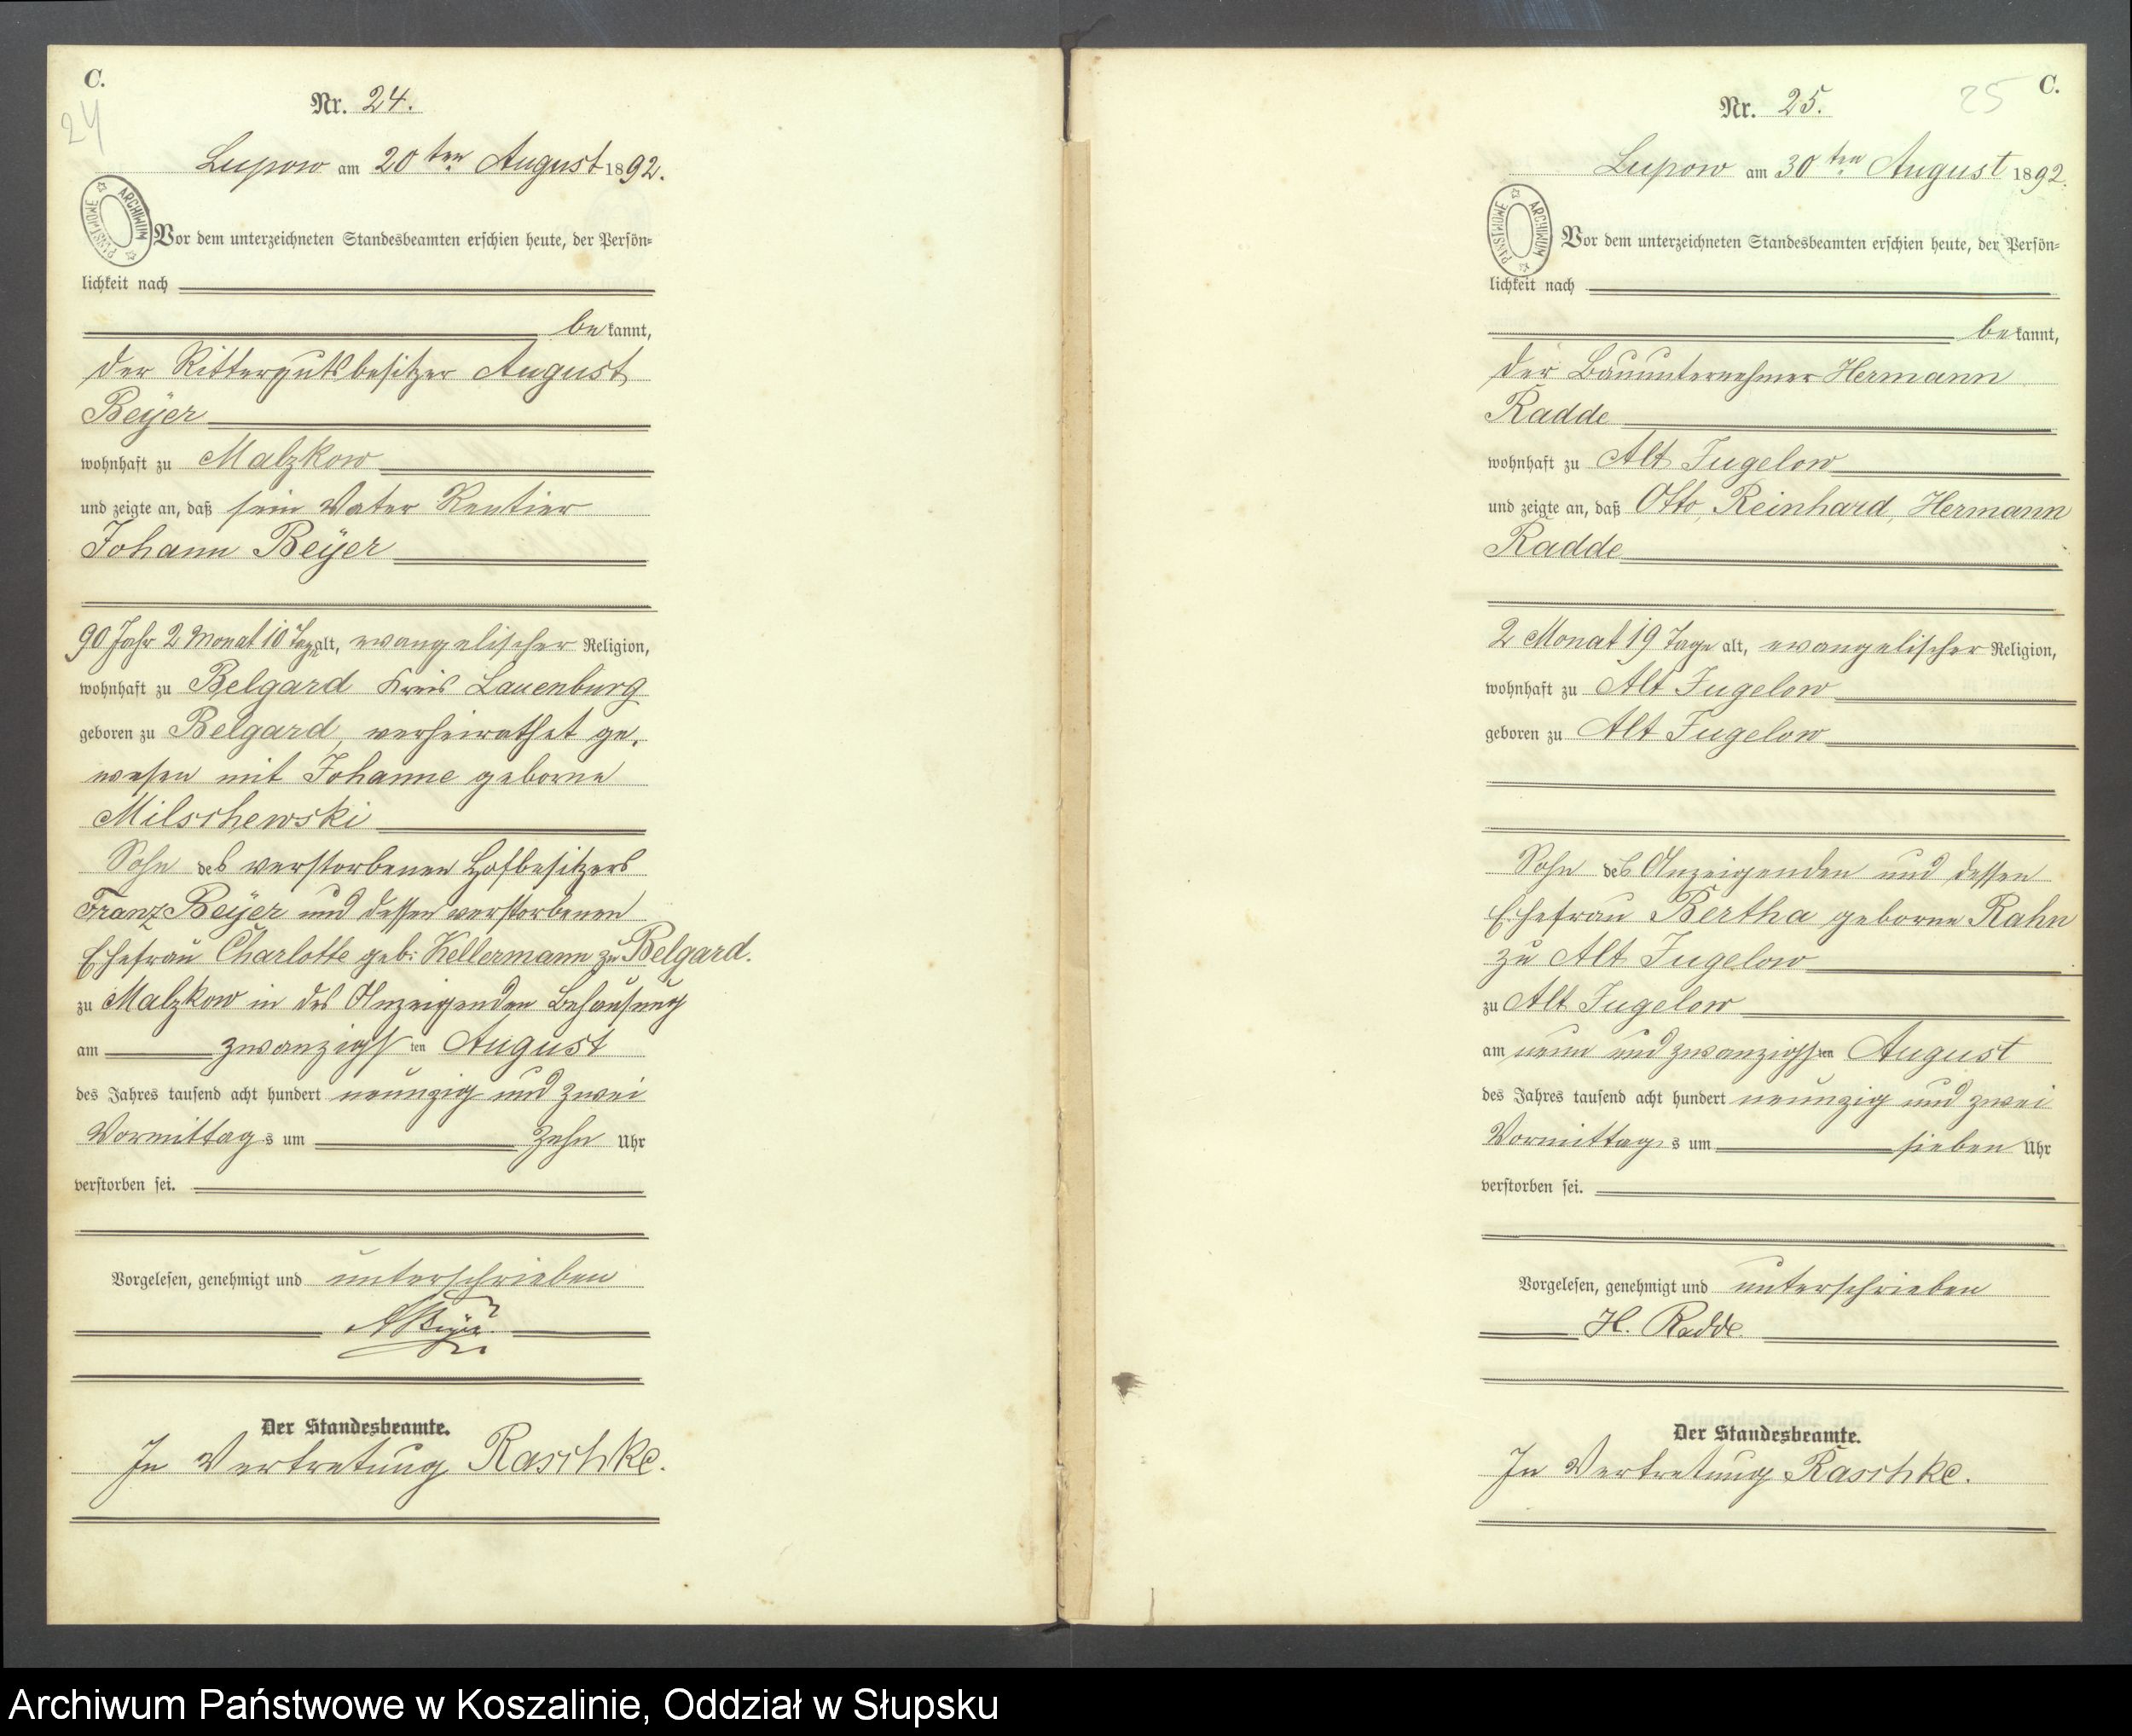 C.
24
Nr. 24.
Lupow am 20ten August 1892.
ARCHIWUM PAŃSTWOWE
Vor dem unterzeichneten Standesbeamten erschien heute, der Persön=
lichkeit nach
bekannt,
der Rittergutsbesitzer August
Beÿer
wohnhaft zu Malzkow
und zeigte an, daß sein Vater Rentier
Johann Beÿer
90 Jahr 2 Monat 10 Tage alt, evangelischer Religion,
wohnhaft zu Belgard Kreis Lauenburg
geboren zu Belgard, verheirathet ge,
wesen mit Johanne geborne
Milschewski
Sohn des verstorbenen Hofbesitzers
Franz Beÿer und dessen verstorbenen
Ehefrau Charlotte geb: Kellermann zu Belgard.
zu Malzkow in des Anzeigenden Behausung
am zwanzigsten August
des Jahres tausend acht hundert neunzig und zwei
Vormittags um zehn Uhr
verstorben sei.
Vorgelesen, genehmigt und unterschrieben
A Beyer
Der Standesbeamte.
In Vertretung Raschke.
C.
25
Nr. 25.
Lupow am 30ten August 1892.
ARCHIWUM PAŃSTWOWE
Vor dem unterzeichneten Standesbeamten erschien heute, der Persön=
lichkeit nach
bekannt,
der Bauunternehmer Hermann
Radde
wohnhaft zu Alt Jugelow
und zeigte an, daß Otto, Reinhard, Hermann
Radde
2 Monat 19 Tage alt, evangelischer Religion,
wohnhaft zu Alt Jugelow
geboren zu Alt Jugelow
Sohn des Anzeigenden und dessen
Ehefrau Bertha geborne Rahn
zu Alt Jugelow
zu Alt Jugelow
am neun und zwanzigsten August
des Jahres tausend acht hundert neunzig und zwei
Vormittags um sieben Uhr
verstorben sei.
Vorgelesen, genehmigt und unterschrieben
H. Radde.
Der Standesbeamte.
In Vertretung Raschke.
Archiwum Państwowe w Koszalinie, Oddział w Słupsku